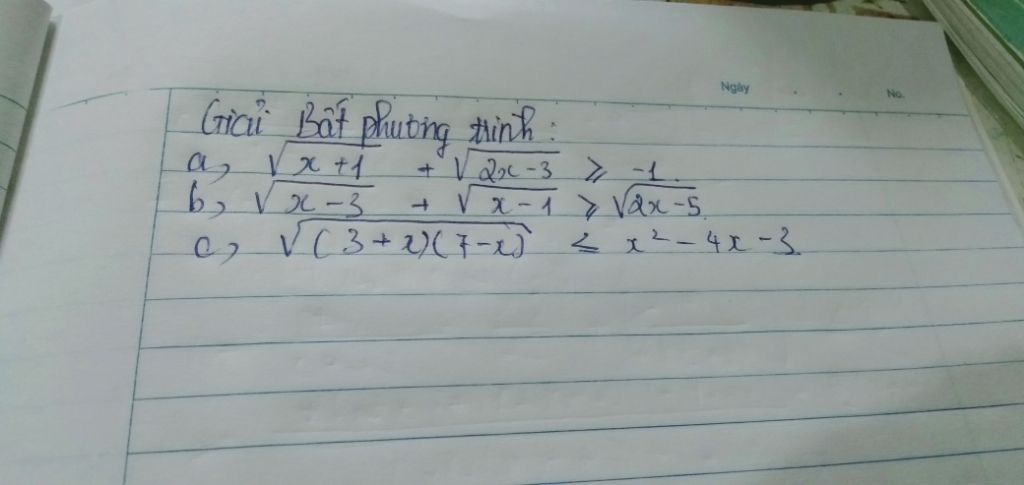 Ngày
No.
Giải Bất phương trình :
a, √(x+1) + √(2x-3) ⩾ -1.
b, √(x-3) + √(x-1) ⩾ √(2x-5).
c, √((3+x)(7-x)) ≤ x² - 4x - 3.